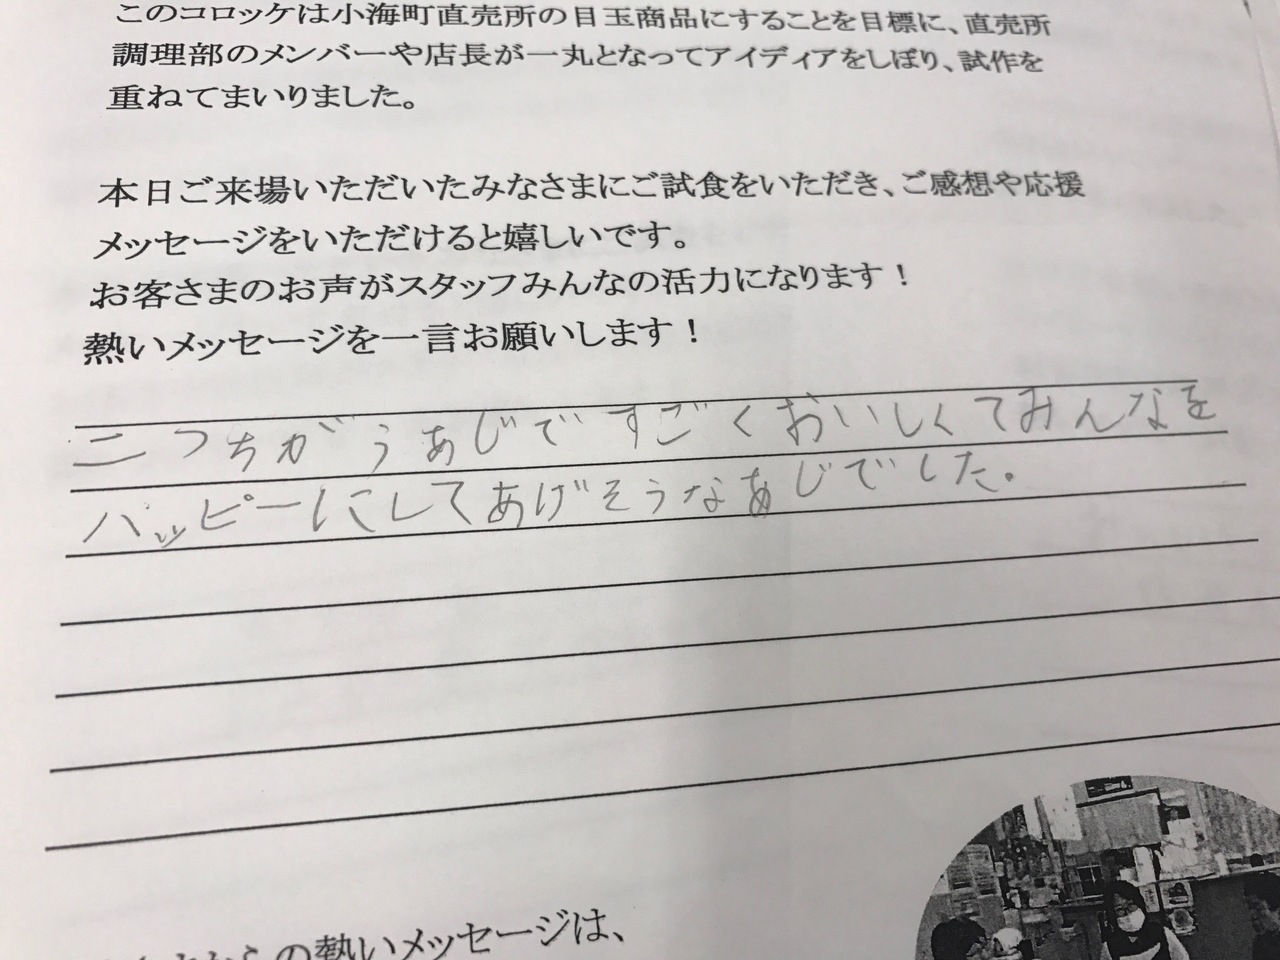 このコロッケは小海町直売所の目玉商品にすることを目標に、直売所
調理部のメンバーや店長が一丸となってアイディアをしぼり、試作を
重ねてまいりました。
本日ご来場いただいたみなさまにご試食をいただき、ご感想や応援
メッセージをいただけると嬉しいです。
お客さまのお声がスタッフみんなの活力になります！
熱いメッセージを一言お願いします！
二つちがうあじですごくおいしくてみんなを
ハッピーにしてあげそうなあじでした。
らの熱いメッセージは、